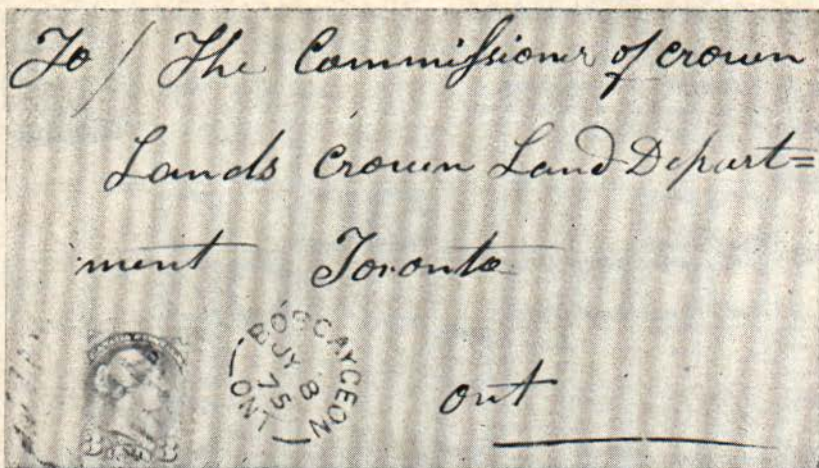 To / The Commissioner of crown
Lands Crown Land Depart=
ment Toronto
BOBCAYGEON
JY 8
75
ONT
ont
3 3